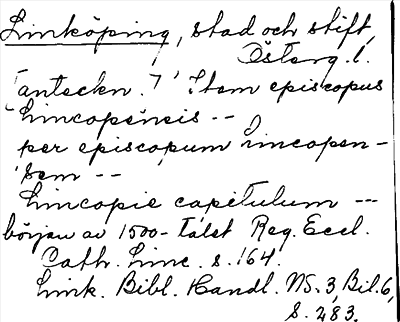 Linköping, stad och stift,
Österg. l.
(anteckn. 7) Item episcopus
Lincopensis --
per episcopum Lincopen-
sem --
Lincopie capitulum ---
början av 1500-talst Reg. Eccl.
Cath. Linc. s. 164.
Link. Bibl. Handl. NS. 3, Bil. 6,
S. 283.